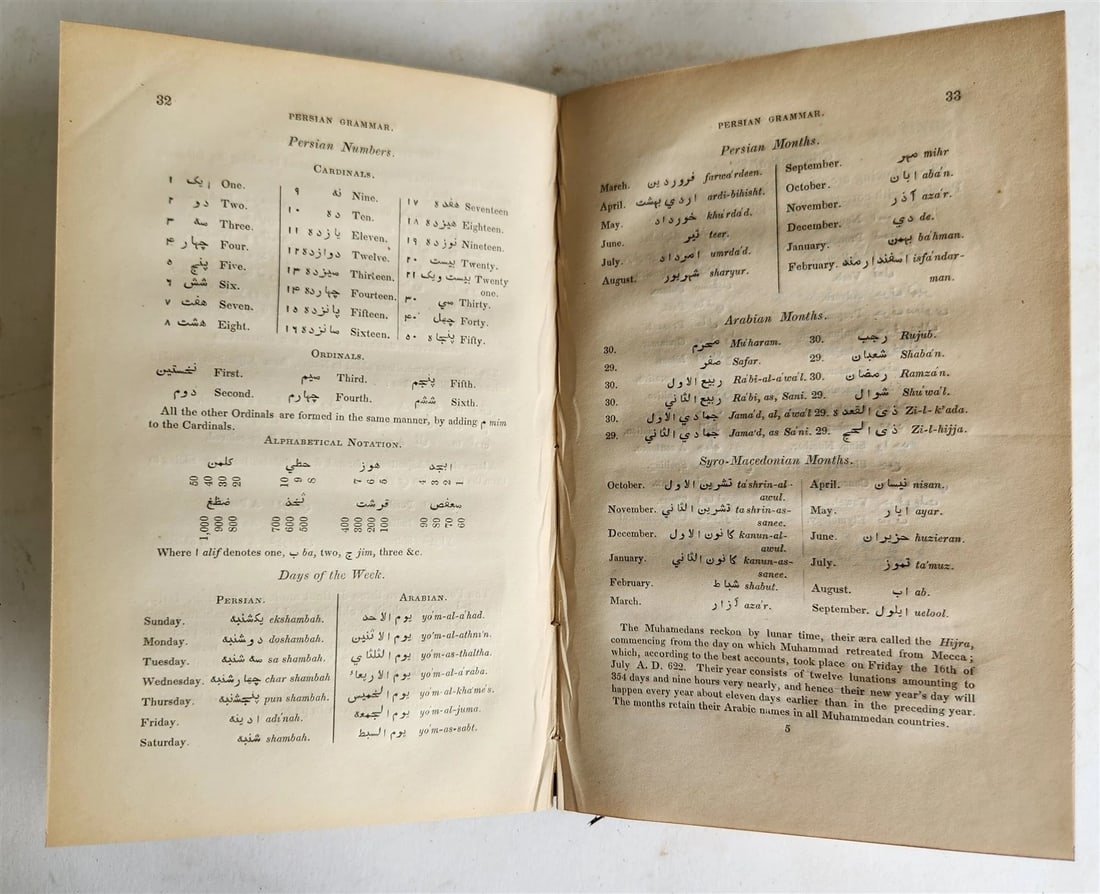 32
PERSIAN GRAMMAR.
Persian Numbers.
CARDINALS.
۱ ایک One.
۲ دو Two.
۳ سه Three.
۴ چهار Four.
۵ پنج Five.
۶ شش Six.
۷ هفت Seven.
۸ هشت Eight.
۹ نه Nine.
۱۰ ده Ten.
۱۱ یازده Eleven.
۱۲ دوازده Twelve.
۱۳ سیزده Thirteen.
۱۴ چهارده Fourteen.
۱۵ پانزده Fifteen.
۱۶ سانزده Sixteen.
۱۷ هفده Seventeen
۱۸ هیزده Eighteen.
۱۹ نوزده Nineteen.
۲۰ بیست Twenty.
۲۱ بیست ویک Twenty
one.
۳۰ سي Thirty.
۴۰ چهل Forty.
۵۰ پنجاه Fifty.
ORDINALS.
نخستین First.
دوم Second.
سیم Third.
چهارم Fourth.
پنجم Fifth.
ششم Sixth.
All the other Ordinals are formed in the same manner, by adding م mim
to the Cardinals.
ALPHABETICAL NOTATION.
ابجد هوز حطي کلمن
1 2 3 4 5 6 7 8 9 10 20 30 40 50
سعفص قرشت ثخذ ضظغ
60 70 80 90 100 200 300 400 500 600 700 800 900 1,000
Where ا alif denotes one, ب ba, two, ج jim, three &c.
Days of the Week.
PERSIAN. ARABIAN.
Sunday. یکشنبه ekshambah. یوم الاحد yo'm-al-a'had.
Monday. دوشنبه doshambah. یوم الاثنین yo'm-al-athni'n.
Tuesday. سه شنبه sa shambah. یوم الثلثاي yo'm-as-thaltha.
Wednesday. چهارشنبه char shambah یوم الاربعاء yo'm-al-a'raba.
Thursday. پنجشنبه pun shambah. یوم الخمیس yo'm-al-kha'me's.
Friday. ادینه adi'nah. یوم الجمعه yo'm-al-juma.
Saturday. شنبه shambah. یوم السبط yo'm-as-sabt.
33
PERSIAN GRAMMAR.
Persian Months.
March. فروردین farwa'rdeen.
April. اردي بهشت ardi-bihisht.
May. خورداد khu'rda'd.
June. تیر teer.
July. امرداد umrda'd.
August. شهریور sharyur.
September. مهر mihr
October. ابان aba'n.
November. آذر aza'r.
December. دي de.
January. بهمن ba'hman.
February. اسفندارمند isfa'ndar-
man.
Arabian Months.
30. محرم Mu'haram. 30. رجب Rujub.
29. صفر Safar. 29. شعبان Shaba'n.
30. ربیع الاول Ra'bi-al-a'wa'l. 30. رمضان Ramza'n.
29. ربیع الثاني Ra'bi, as, Sani. 29. شوال Shu'wa'l.
30. جمادي الاول Jama'd, al, a'wa'l 29. ذي القعده Zi-l-k'ada.
29. جمادي الثاني Jama'd, as Sa'ni. 29. ذي الحج Zi-l-hijja.
Syro-Macedonian Months.
October. تشرین الاول ta'shrin-al-
awul.
November. تشرین الثاني ta shrin-as-
sanee.
December. کانون الاول kanun-al-
awul.
January. کانون الثاني kanun-as-
sanee.
February. شباط shabut.
March. آزار aza'r.
April. نیسان nisan.
May. ایار ayar.
June. حزیران huzieran.
July. تموز ta'muz.
August. اب ab.
September. ایلول uelool.
The Muhamedans reckon by lunar time, their æra called the Hijra,
commencing from the day on which Muhammad retreated from Mecca;
which, according to the best accounts, took place on Friday the 16th of
July A. D. 622. Their year consists of twelve lunations amounting to
354 days and nine hours very nearly, and hence their new year's day will
happen every year about eleven days earlier than in the preceding year.
The months retain their Arabic names in all Muhammedan countries.
5